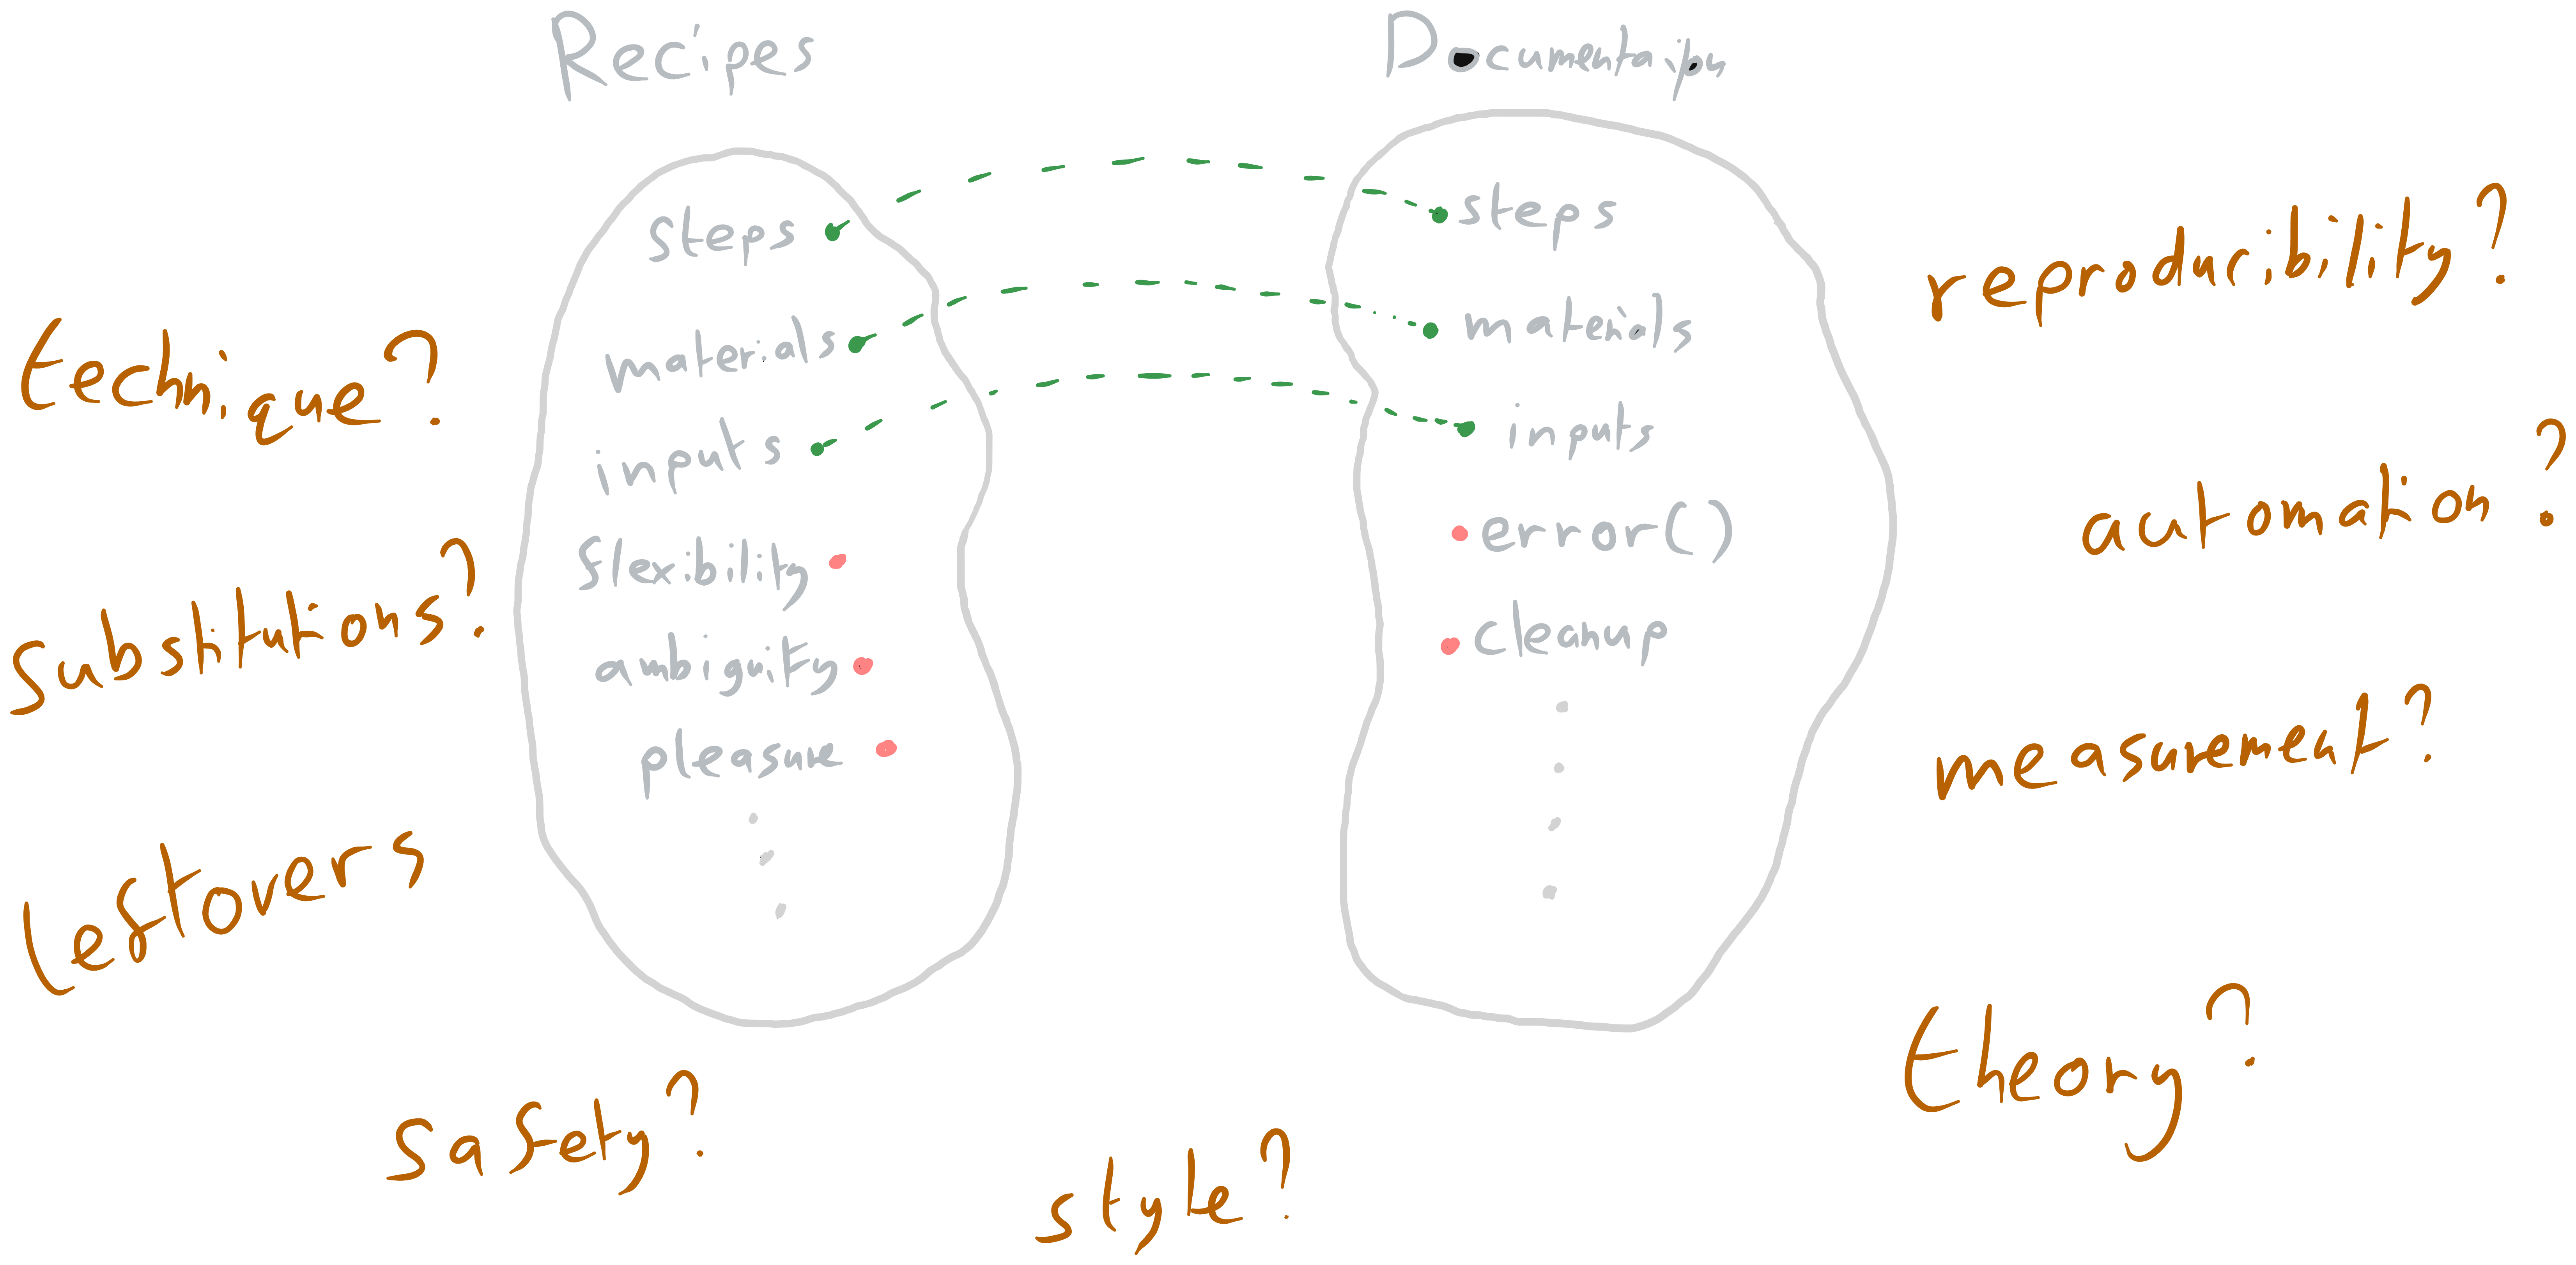 Recipes
Documentaiton
steps
materials
inputs
flexibility
ambiguity
pleasure
steps
materials
inputs
error()
cleanup
technique?
substitutions?
leftovers
safety?
style?
reproducibility?
automation?
measurement?
theory?